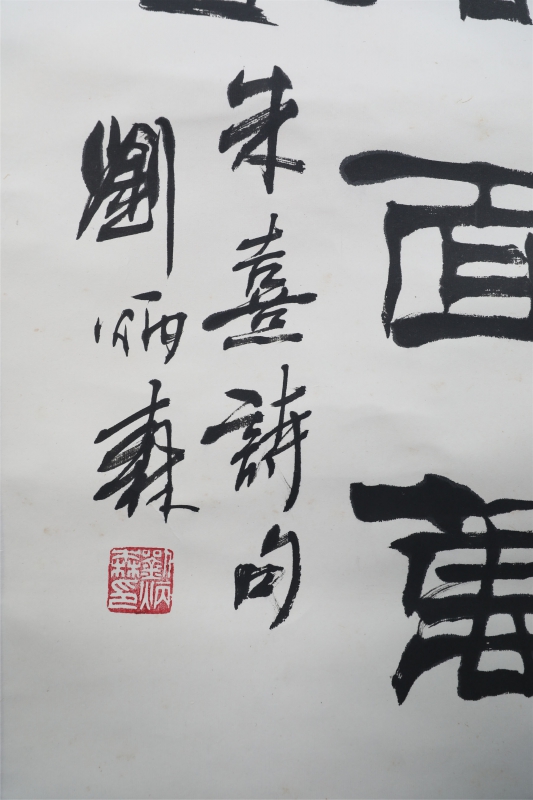 面萬
朱熹詩句
劉炳森
劉炳森印